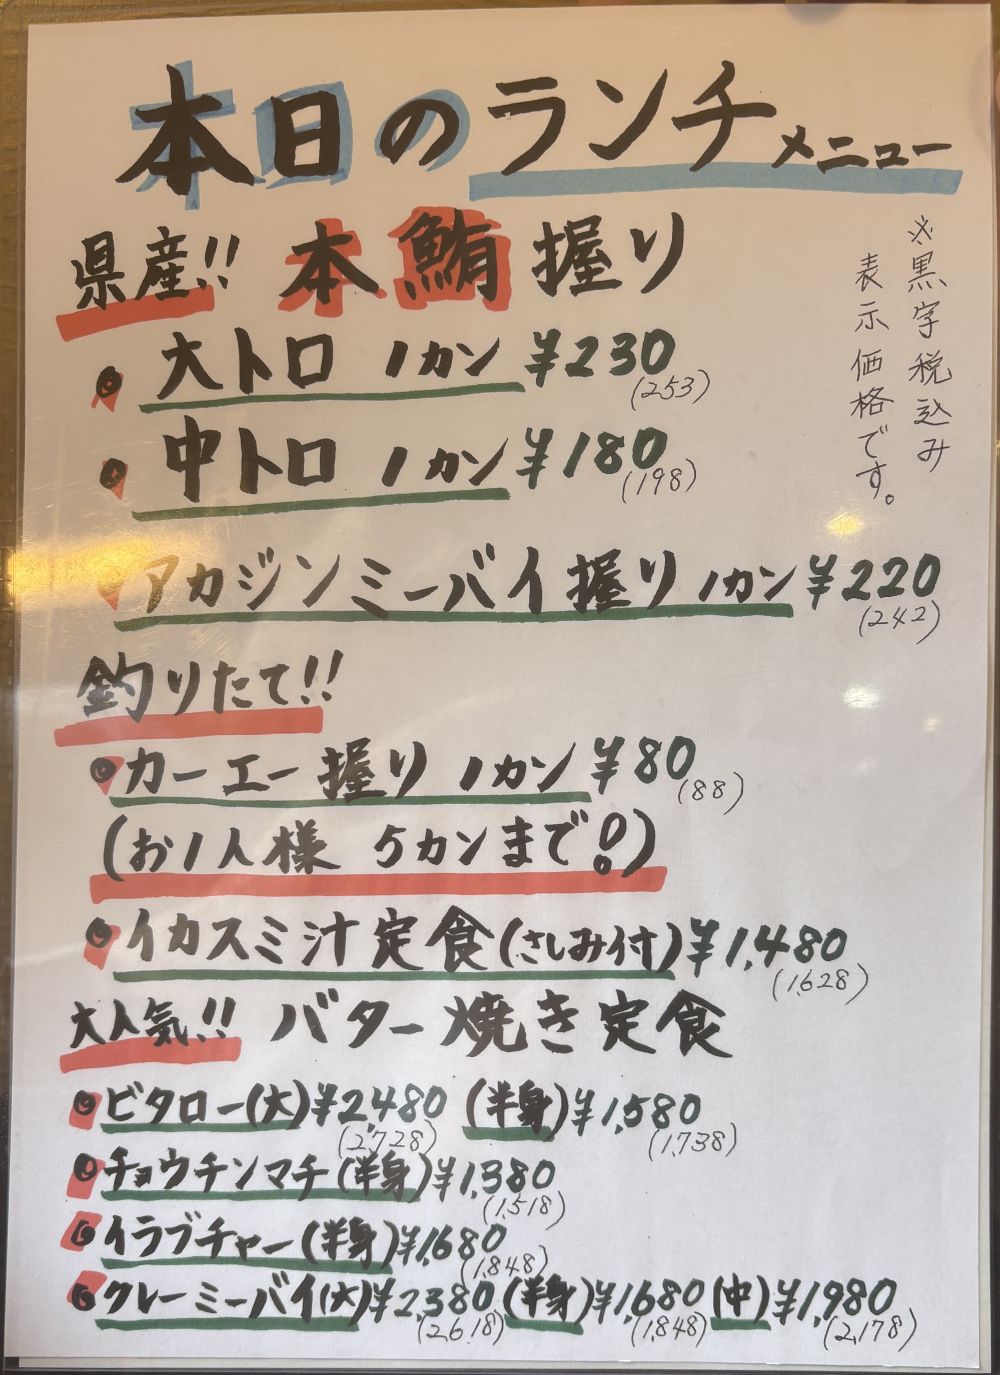 本日のランチメニュー
※黒字税込み
表示価格です。
県産!! 本鮪握り
大トロ 1カン ¥230
(253)
中トロ 1カン ¥180
(198)
アカジンミーバイ握り 1カン ¥220
(242)
釣りたて!!
カーエー握り 1カン ¥80
(88)
(お1人様 5カンまで!)
イカスミ汁定食(さしみ付) ¥1,480
(1,628)
大人気!! バター焼き定食
ビタロー(大) ¥2,480 (半身) ¥1,580
(2,728) (1,738)
チョウチンマチ(半身) ¥1,380
(1,518)
イラブチャー(半身) ¥1,680
(1,848)
クレーミーバイ(大) ¥2,380 (半身) ¥1,680 (中) ¥1,980
(2,618) (1,848) (2,178)